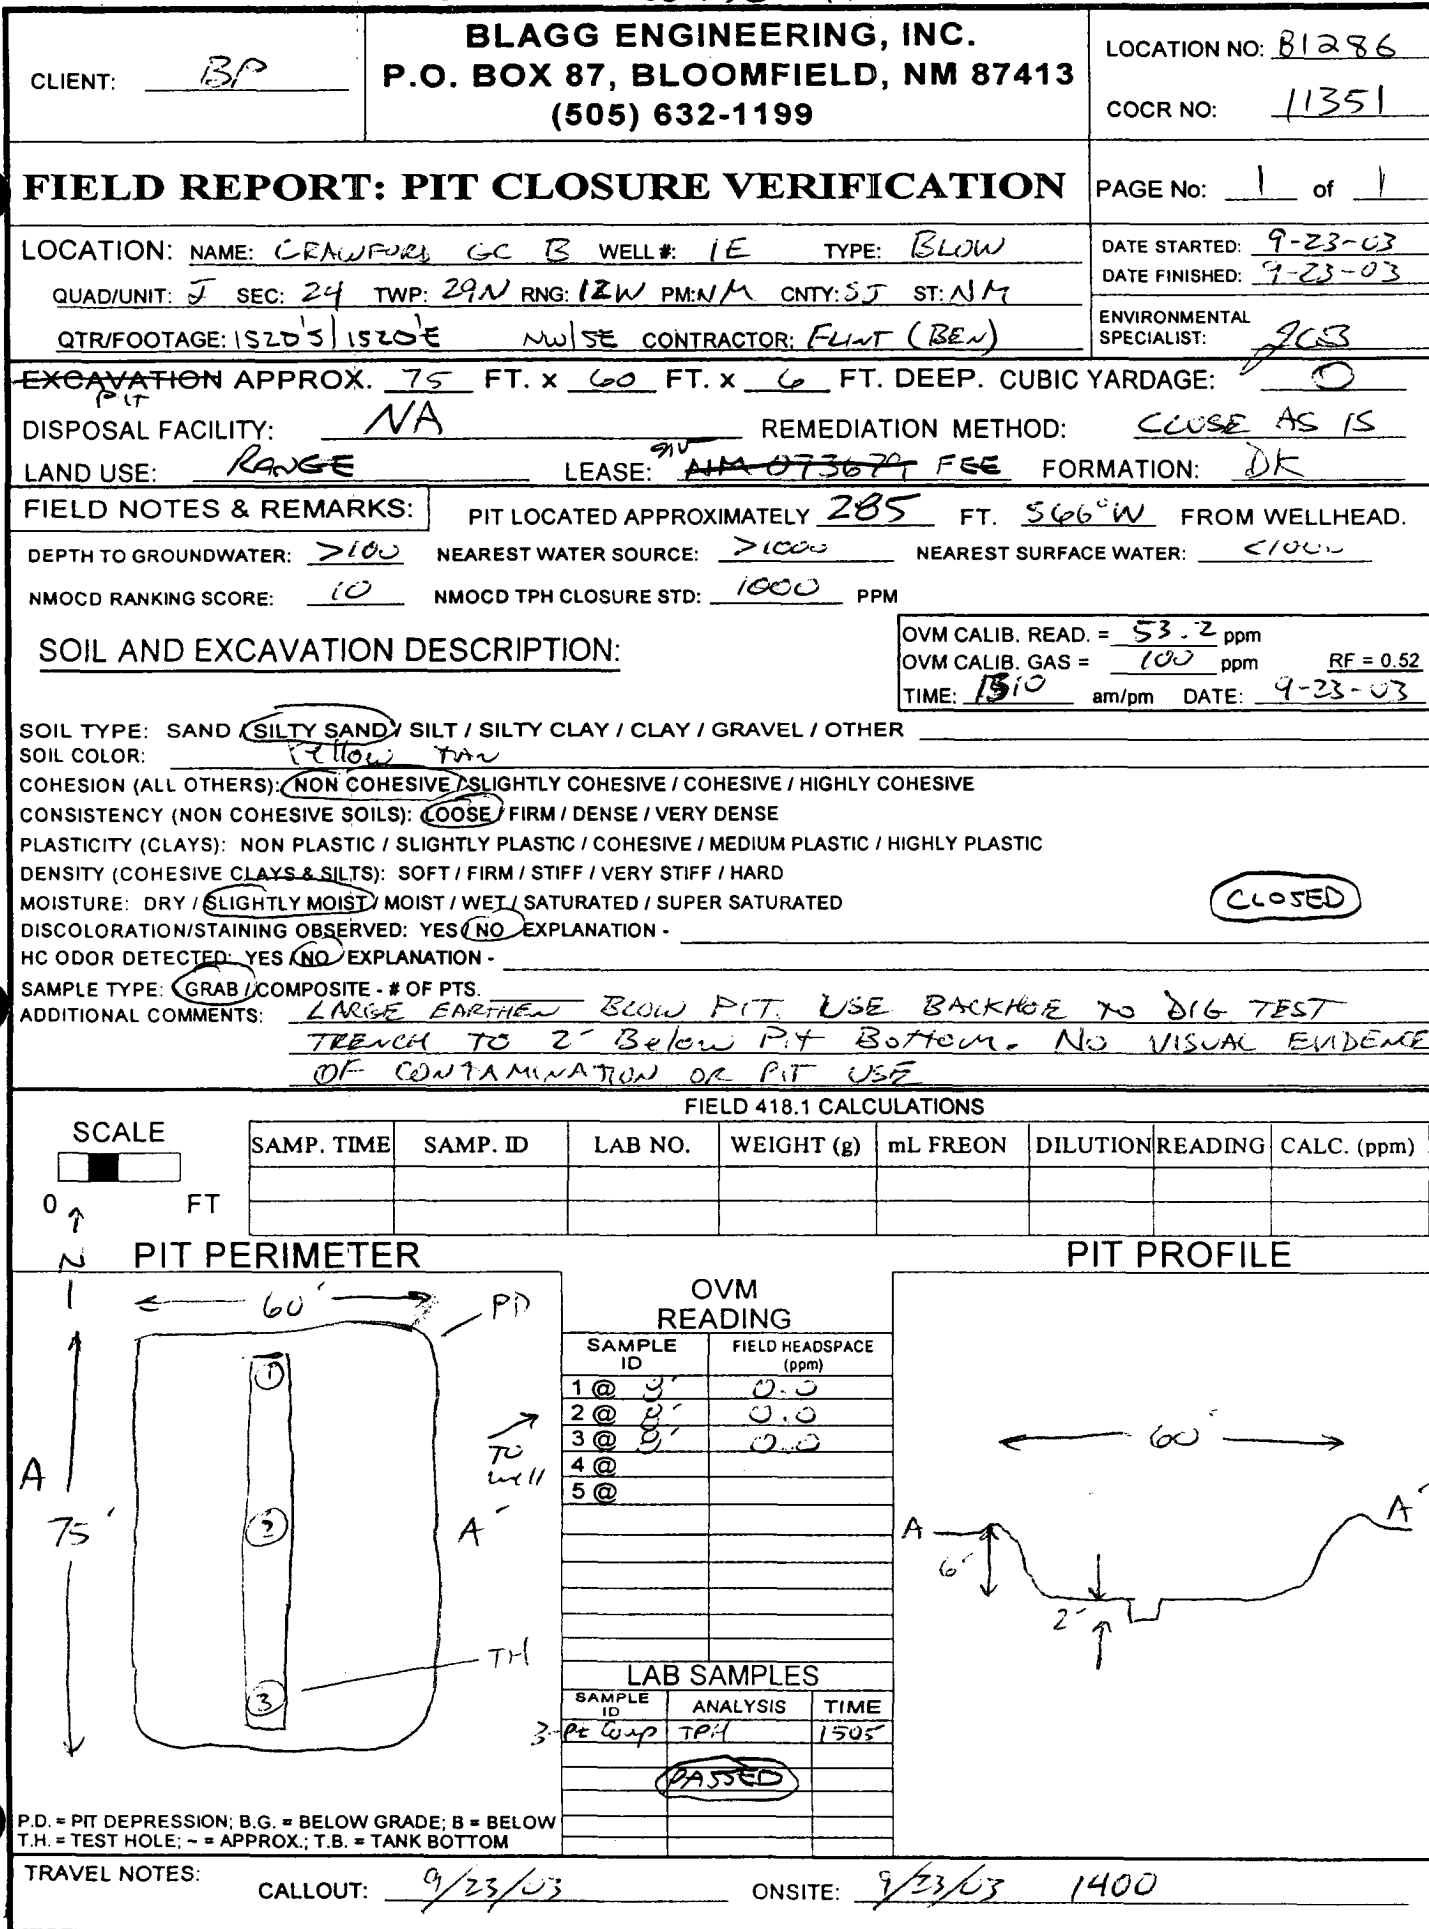 BLAGG ENGINEERING, INC.
P.O. BOX 87, BLOOMFIELD, NM 87413
(505) 632-1199
CLIENT: BP
LOCATION NO: B1286
COCR NO: 11351
FIELD REPORT: PIT CLOSURE VERIFICATION
PAGE No: 1 of 1
LOCATION: NAME: CRAWFORD GC B WELL #: 1E TYPE: BLOW
QUAD/UNIT: J SEC: 24 TWP: 29N RNG: 12W PM: NM CNTY: SJ ST: NM
QTR/FOOTAGE: 1520'S/1520'E NW/SE CONTRACTOR: FLINT (BEN)
DATE STARTED: 9-23-03
DATE FINISHED: 9-23-03
ENVIRONMENTAL
SPECIALIST: JCB
EXCAVATION APPROX. 75 FT. x 60 FT. x 6 FT. DEEP. CUBIC YARDAGE: 0
PIT
DISPOSAL FACILITY: NA REMEDIATION METHOD: CLOSE AS IS
LAND USE: RANGE LEASE: NM 073679 FEE FORMATION: DK
FIELD NOTES & REMARKS: PIT LOCATED APPROXIMATELY 285 FT. S66°W FROM WELLHEAD.
DEPTH TO GROUNDWATER: >100 NEAREST WATER SOURCE: >1000 NEAREST SURFACE WATER: <1000
NMOCD RANKING SCORE: 10 NMOCD TPH CLOSURE STD: 1000 PPM
SOIL AND EXCAVATION DESCRIPTION:
OVM CALIB. READ. = 53.2 ppm
OVM CALIB. GAS = 100 ppm RF = 0.52
TIME: 1510 am/pm DATE: 9-23-03
SOIL TYPE: SAND / SILTY SAND / SILT / SILTY CLAY / CLAY / GRAVEL / OTHER
SOIL COLOR: Yellow TAN
COHESION (ALL OTHERS): NON COHESIVE / SLIGHTLY COHESIVE / COHESIVE / HIGHLY COHESIVE
CONSISTENCY (NON COHESIVE SOILS): LOOSE / FIRM / DENSE / VERY DENSE
PLASTICITY (CLAYS): NON PLASTIC / SLIGHTLY PLASTIC / COHESIVE / MEDIUM PLASTIC / HIGHLY PLASTIC
DENSITY (COHESIVE CLAYS & SILTS): SOFT / FIRM / STIFF / VERY STIFF / HARD
MOISTURE: DRY / SLIGHTLY MOIST / MOIST / WET / SATURATED / SUPER SATURATED
CLOSED
DISCOLORATION/STAINING OBSERVED: YES / NO EXPLANATION -
HC ODOR DETECTED: YES / NO EXPLANATION -
SAMPLE TYPE: GRAB / COMPOSITE - # OF PTS.
ADDITIONAL COMMENTS: LARGE EARTHEN BLOW PIT. USE BACKHOE TO DIG TEST
TRENCH TO 2' Below Pit Bottom. NO VISUAL EVIDENCE
OF CONTAMINATION OR PIT USE
FIELD 418.1 CALCULATIONS
SCALE
0 FT
SAMP. TIME SAMP. ID LAB NO. WEIGHT (g) mL FREON DILUTION READING CALC. (ppm)
N
PIT PERIMETER
60'
PD
1
TO
well
A
75'
2
A'
TH
3
OVM
READING
SAMPLE
ID
FIELD HEADSPACE
(ppm)
1 @ 8' 0.0
2 @ 8' 0.0
3 @ 8' 0.0
4 @
5 @
LAB SAMPLES
SAMPLE
ID
ANALYSIS TIME
3-Pt Comp TPH 1505
PASSED
PIT PROFILE
60'
A
A'
6'
2'
P.D. = PIT DEPRESSION; B.G. = BELOW GRADE; B = BELOW
T.H. = TEST HOLE; ~ = APPROX.; T.B. = TANK BOTTOM
TRAVEL NOTES:
CALLOUT: 9/23/03 ONSITE: 9/23/03 1400